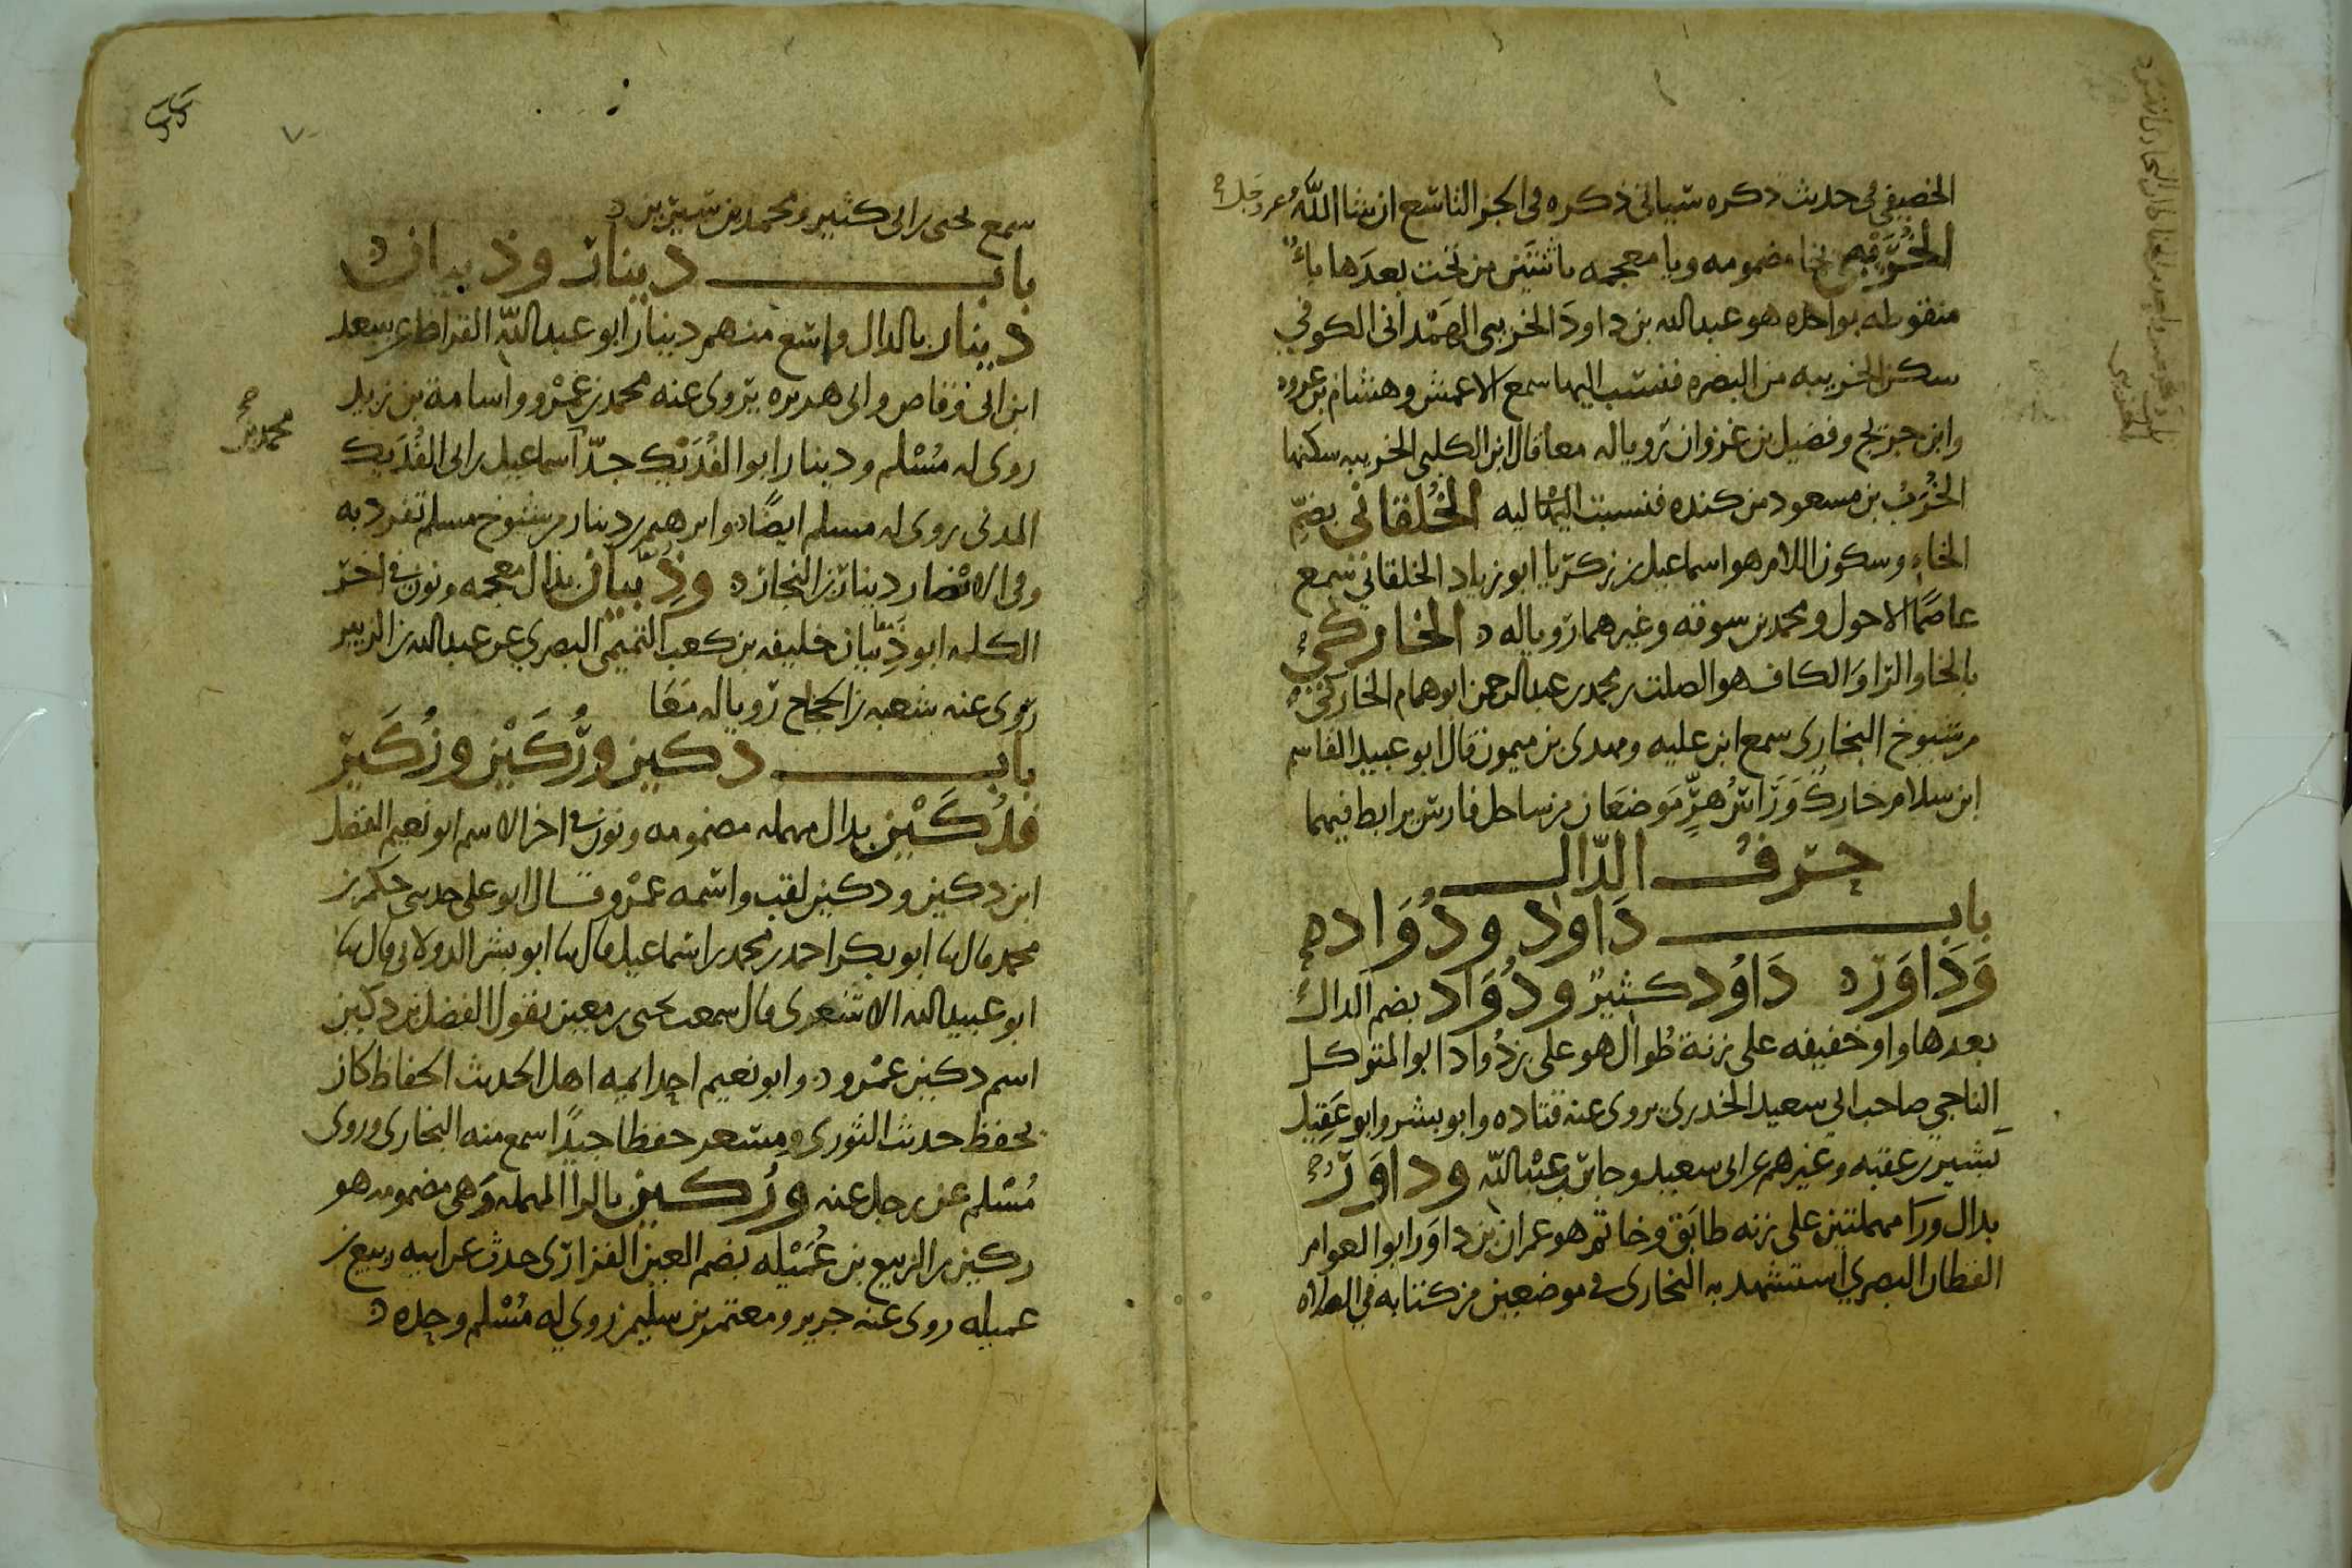 الخصيفي في حديث ذكره سياتي ذكره في الجز التاسع ان شا الله عز وجل
الخُرَيْبي بخا مضمومه ويا معجمه باثنتين من تحت بعدها باء
منقوطه بواحده هو عبدالله بن داود الخريبي الهمداني الكوفي
سكن الخريبه من البصره فنسب اليها سمع الاعمش وهشام بن عروه
وابن جريج وفضيل بن غزوان رويا له معا قال ابن الكلبي الخريبه سكنها
الخُرَبُ بن مسعود من كنده فنسبت اليه الخُلقاني بضم
الخاء وسكون اللام هو اسماعيل بن زكريا ابو زياد الخلقاني سمع
عاصمًا الاحول ومحمد بن سوقه وغيرهما رويا له الخاركي
بالخا والرا والكاف هو الصلت بن محمد بن عبدالرحمن ابو همام الخاركي
من شيوخ البخاري سمع ابن عليه ومهدي بن ميمون قال ابو عبيد القاسم
ابن سلام خارك ورامهرمز موضعان من ساحل فارس يرابط فيهما
حرف الدّال
باب داود ودُوَاد
وَدَاوَر دَاوُد كثيرٌ ودُوَاد بضم الدال
بعدها واو خفيفه على زنة طُوال هو علي بن دُواد ابو المتوكل
الناجي صاحب ابي سعيد الخدري يروي عنه قتاده وابو بشر وابو عَقِيل
بشير بن عقبه وغيرهم عن ابي سعيد وجابر بن عبدالله وداوَر
بدال ورا مهملتين على زنه طابَق وخاتَم هو عمران بن داوَر ابو العوام
القطان البصري استشهد به البخاري في موضعين من كتابه في الصلاه
سمع يحيى بن ابي كثير ومحمد بن سيرين
باب دينار وذبيان
دينار بالدال واسع منهم دينار ابو عبدالله القراظ عن سعد
ابن ابي وقاص وابي هريره يروي عنه محمد بن عمرو واسامة بن زيد
روى له مُسْلم ودينار ابو الفُدَيْك جدّ اسماعيل بن ابي الفُدَيك
محمد بن صح
المدني روى له مسلم ايضًا وابرهيم بن دينار من شيوخ مسلم تفرد به
وفي الانصار دينار بن النجار وذُبيان بذال معجمه ونون في اخر
الكلمه ابو ذبيان خليفه بن كعب التميمي البصري عن عبدالله بن الزبير
روى عنه شعبه بن الحجاج رويا له معَا
باب دكين ورُكَيْن وزُكَير
فدُكَيْن بدال مهمله مضمومه ونون في اخر الاسم ابو نعيم الفضل
ابن دكين ودكين لقب واسمه عمرو قال ابو علي حدثني حكم بن
محمد قال نا ابو بكر احمد بن محمد بن اسماعيل قال نا ابو بشر الدولابي قال نا
ابو عبيدالله الاشعري قال سمعت يحيى بن معين يقول الفضل بن دكين
اسم دكين عمرو وابو نعيم احد ايمه اهل الحديث الحفاظ كان
يحفظ حديث الثوري ومسعر حفظا جيدًا سمع منه البخاري وروى
مُسْلم عن رجل عنه ورُكين بالرا المهمله وَهي مضمومه هو
ركين بن الربيع بن عُمَيْله بضم العين الفزاري حدث عن ابيه ربيع بن
عميله روى عنه جرير ومعتمر بن سليمن روى له مُسْلم وحده